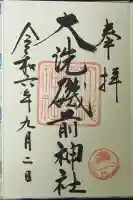 奉拝
大洗磯前神社
令和六年九月二日